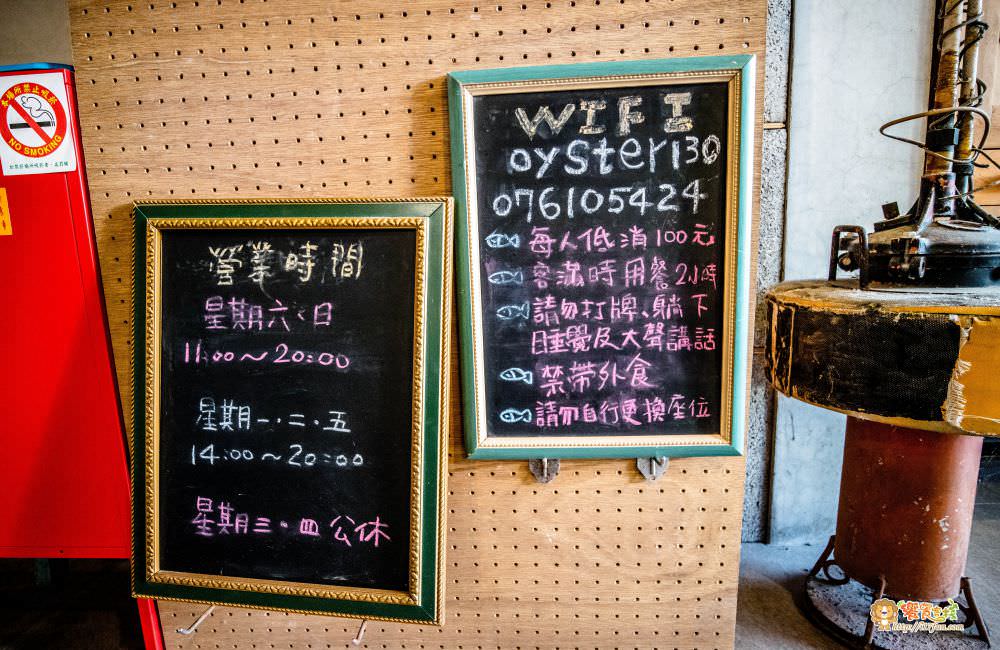 本場所禁止吸菸
NO SMOKING
營業時間
星期六、日
11:00～20:00
星期一.二.五
14:00～20:00
星期三.四 公休
WIFI
oyster130
076105424
每人低消100元
客滿時用餐2小時
請勿打牌、躺下
睡覺及大聲講話
禁帶外食
請勿自行更換座位